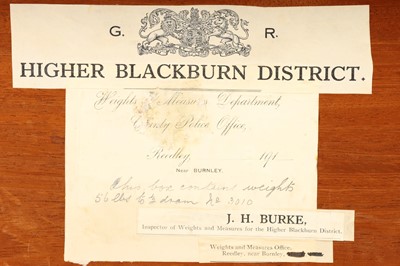 G. R.
HIGHER BLACKBURN DISTRICT.
Weights & Measures Department,
County Police Office,
Reedley 191
Near BURNLEY.
This box contains weights
56 lbs to ½ dram No 3310
J. H. BURKE,
Inspector of Weights and Measures for the Higher Blackburn District.
Weights and Measures Office,
Reedley, near Burnley,